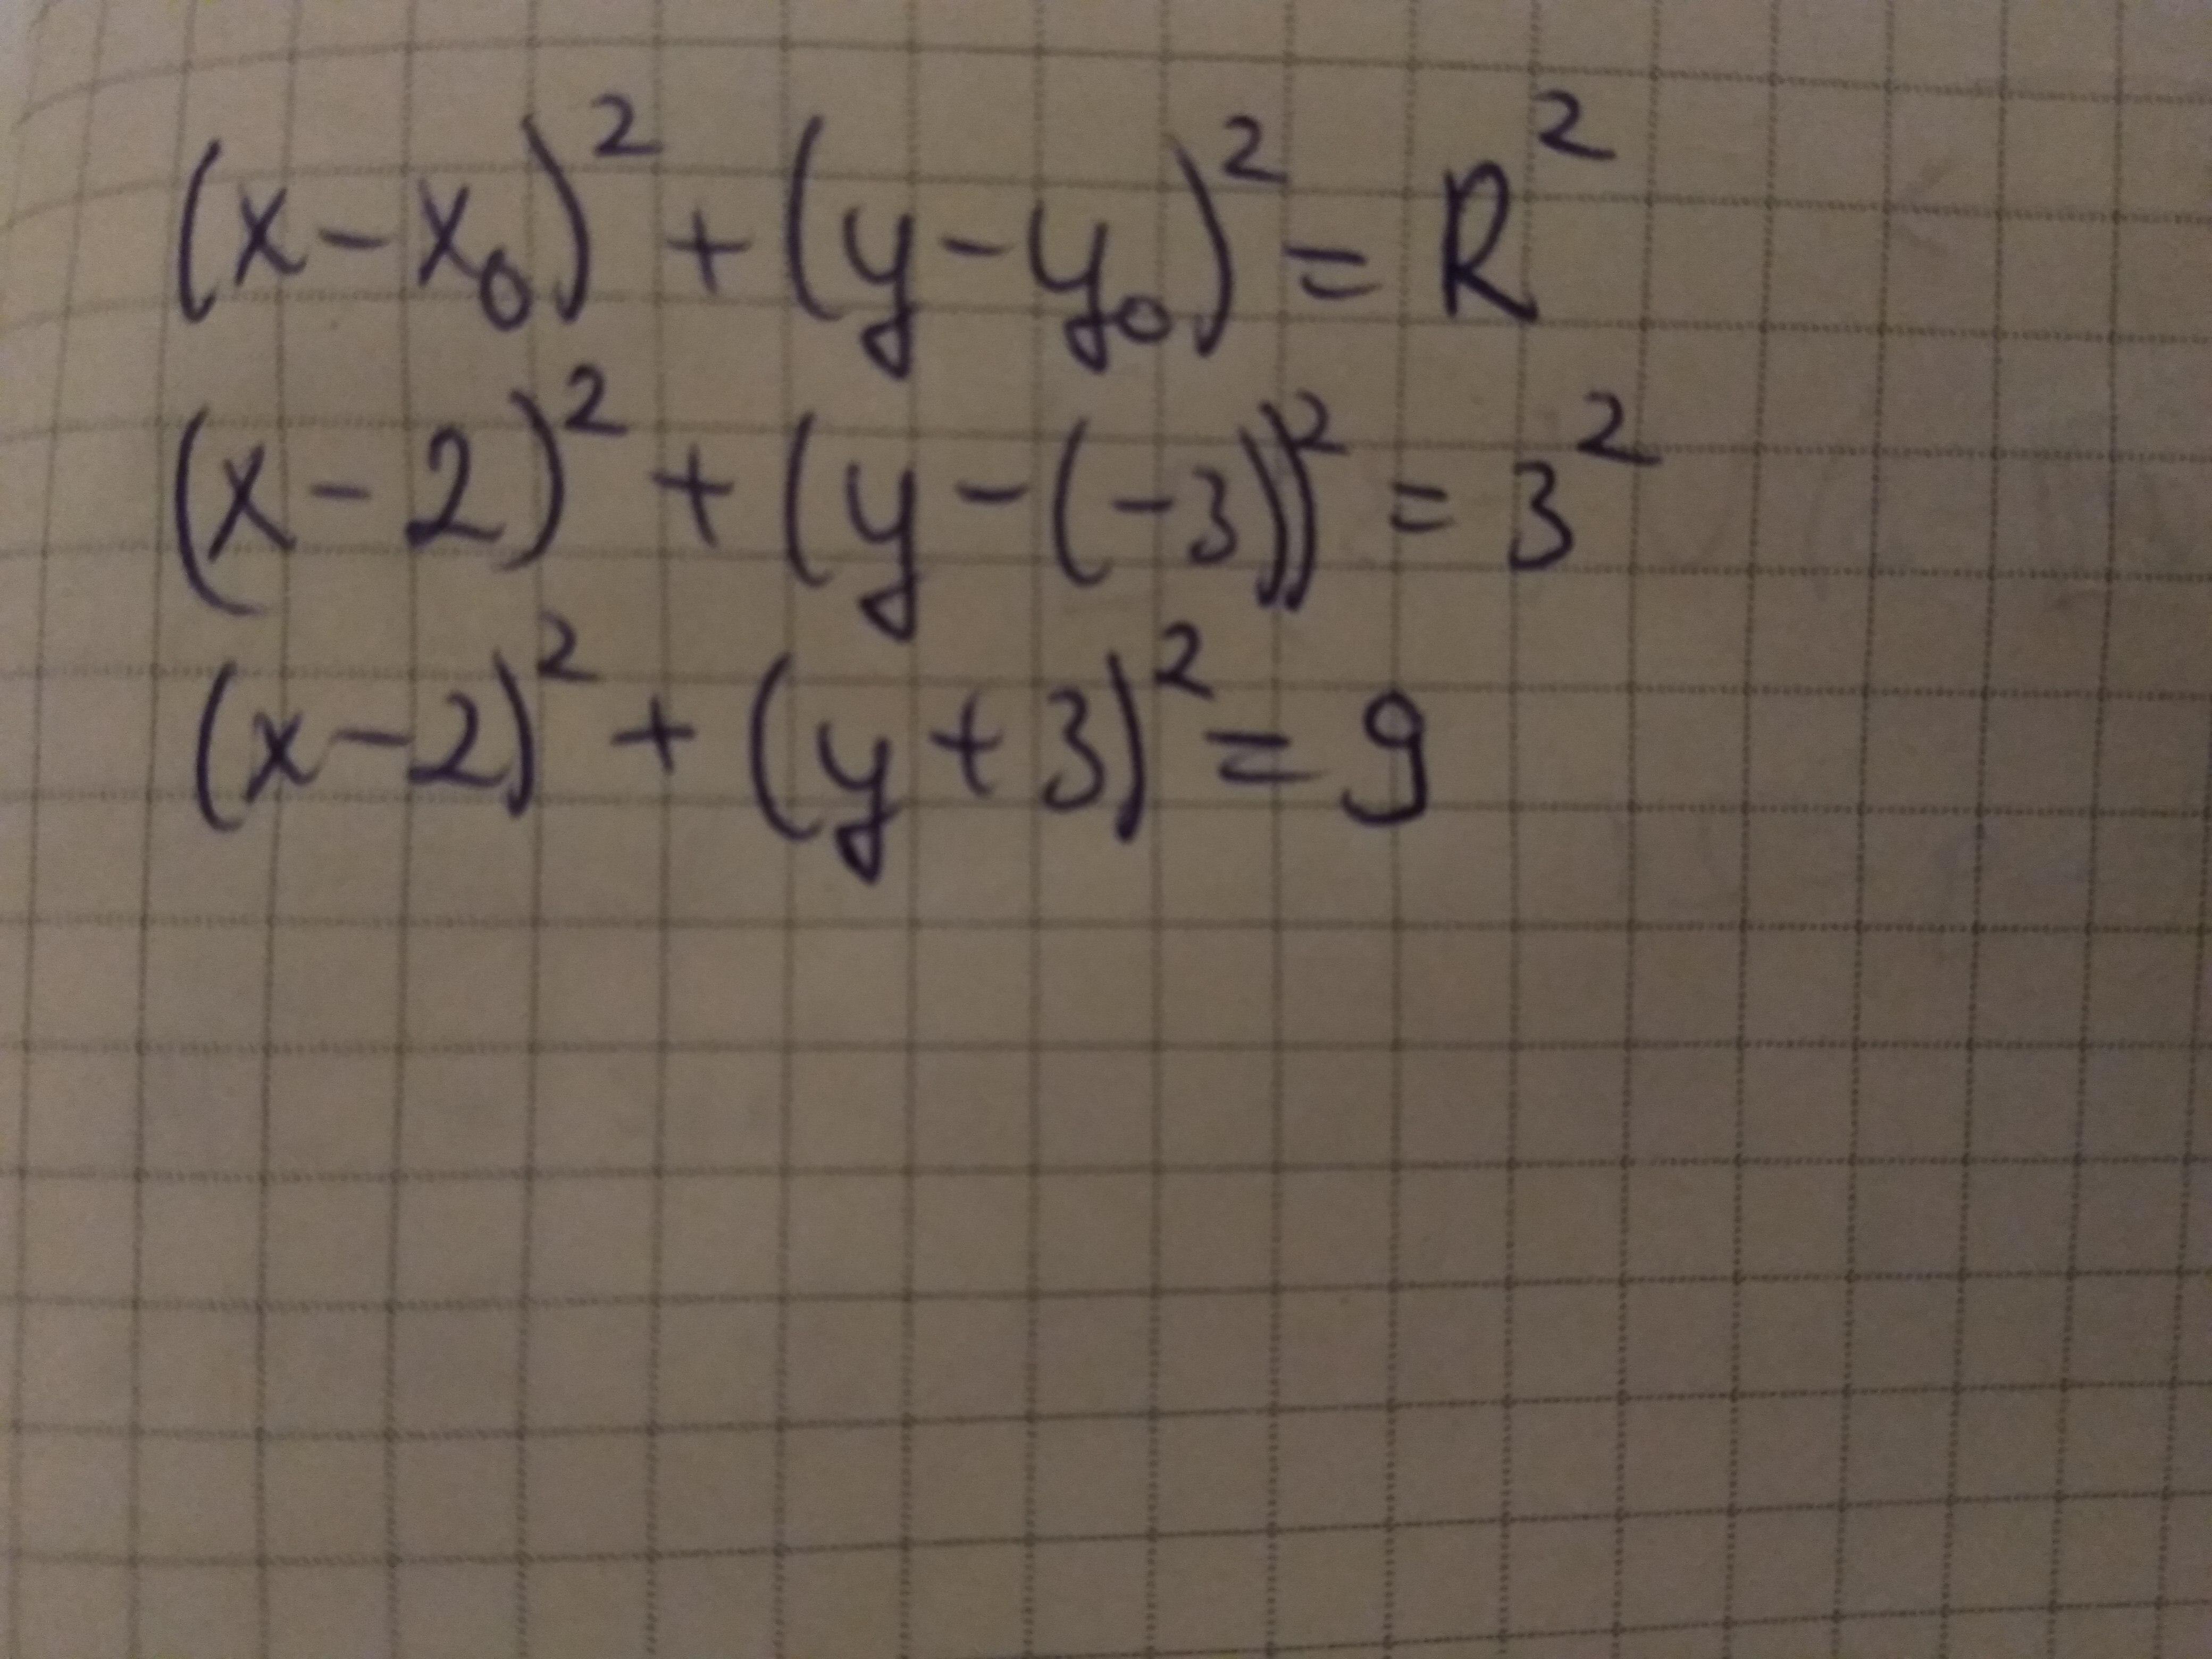 (x-x₀)² + (y-y₀)² = R²
(x-2)² + (y-(-3))² = 3²
(x-2)² + (y+3)² = 9